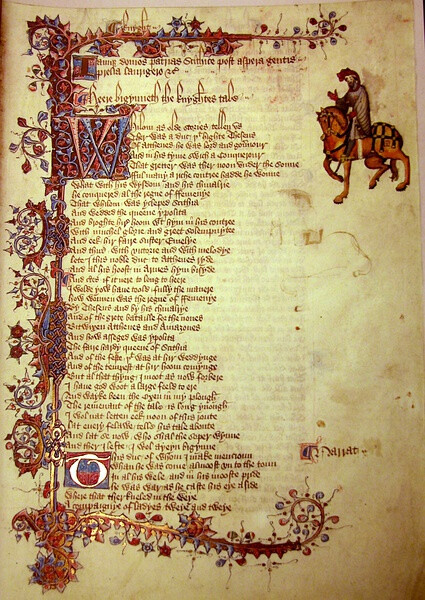 Knyght
Iamque domos patrias Scithice post aspera gentis
prelia laurigero &c
Heere bigynneth the knyghtes tale
Whilom as olde stories tellen vs
Ther was a duc þt highte Theseus
Of Atthenes he was lord and gouernour
And in his tyme swich a Conquerour
That gretter was ther noon vnder the sonne
fful many a riche contree hadde he wonne
What with his wysdom and his chiualrie
He conquered al the regne of ffemenye
That whilom was ycleped Scithia
And wedded the queene ypolita
And broghte hir hoom wt hym in his contree
With muchel glorie and greet solempnytee
And eek hir faire suster Emelye
And thus with victorie and with melodye
Lete I this noble duc to Atthenes ryde
And al his hoost in Armes hym bisyde
And certes if it nere to long to heere
I wolde yow haue toold fully the manere
How wonnen was the regne of ffemenye
By Theseus and by his chiualrye
And of the grete bataille for the nones
Bitwixen Atthenes and Amazones
And how asseged was ypolita
The faire hardy queene of Scithia
And of the feste þt was at hir weddynge
And of the tempest at hir hoom comynge
But al that thyng I moot as now forbere
I haue god woot a large feeld to ere
And wayke been the oxen in my plough
The remenant of the tale is long ynough
I wol nat letten eek noon of this route
lat euery felawe telle his tale aboute
And lat se now who shal the soper wynne
And ther I lefte I wol ayeyn bigynne
This duc of whom I make mencioun
Narrat
Whan he was come almoost vnto the toun
In al his wele and in his mooste pride
He was war as he caste his eye aside
Where that ther kneled in the weye
A compaignye of ladyes tweye and tweye